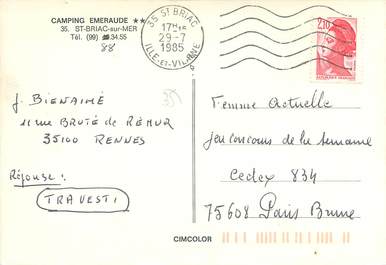 CAMPING EMERAUDE ★★
35. ST-BRIAC-sur-MER
Tél. (99) 88.34.55
88
35 ST BRIAC
17H15
29-7
1985
ILLE-ET-VILAINE
2,10
J. BIENAIMÉ
11 rue BRUTÉ de RÉMUR
35100 RENNES
35
Réponse :
TRAVESTI
Femme Actuelle
Jeu concours de la semaine
Cedex 834
75608 Paris Brune
CIMCOLOR